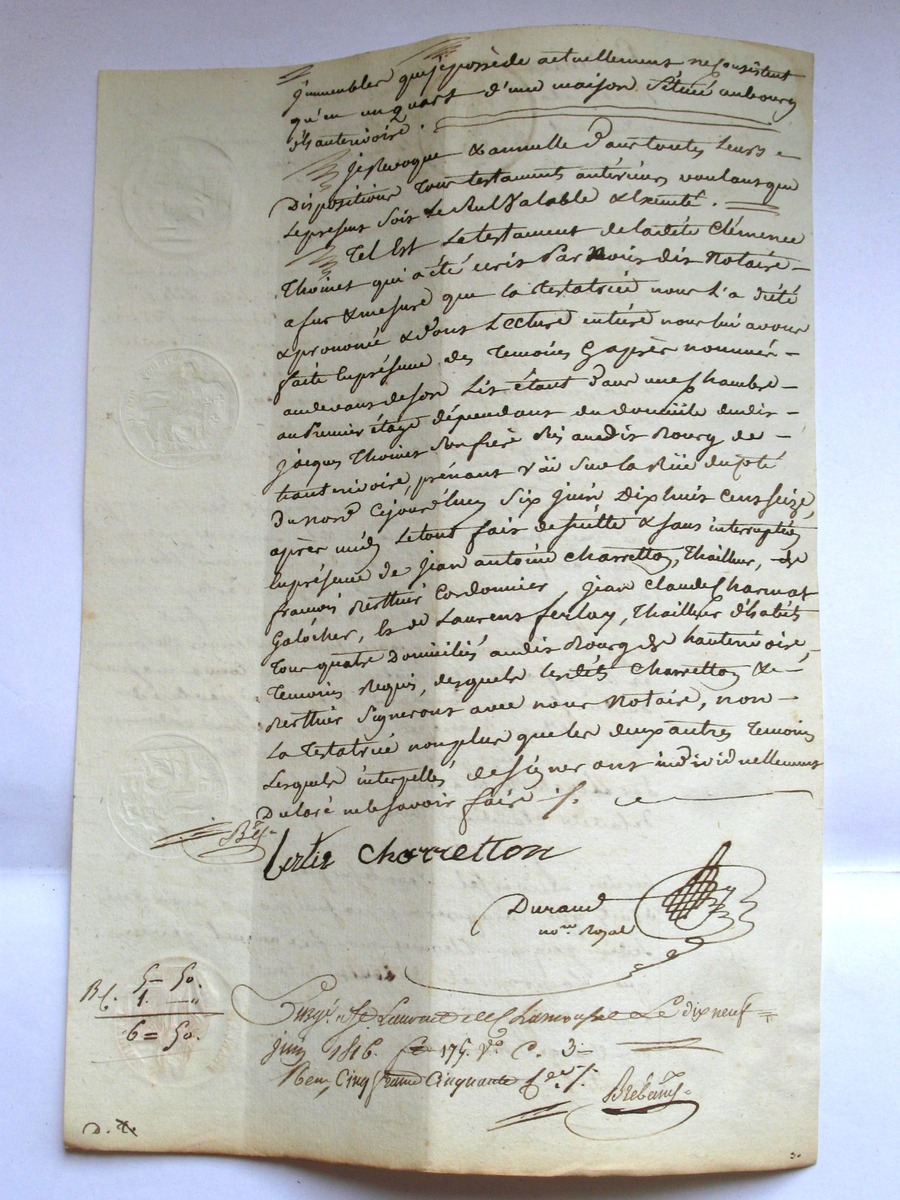 immeubles que je possède actuellement ne consistent
qu'en un quart d'une maison Située au bourg
d'hauterivoire.
Je Revoque & annulle dans toutes leurs
Dispositions tous testaments antérieurs voulant que
le présent Soit le Seul Valable & Exécuté.
Tel Est Le testament de ladite Clémence
Thoinet qui a été écrit Par Nous dit Notaire
a fur & mesure que la testatrice nous l'a dicté
& prononcé & dont Lecture entière nous lui avons
faite En présence des Temoins Cy après nommés
au devant de son Lit étant dans une Chambre
au Premier étage dépendant du domicile dudit
Jacques Thoinet Son frère Sis audit Bourg de
hauterivoire, prénant Vüe Sur la Rüe du côté
du nord Cejourd'huy Six Juin dix huit cent seize,
après midy Le tout fait de suitte & sans interruption
En présence de Jean antoine Charretton, Thailleur, de
francois Berthier Cordonnier, Jean Claude Charmat
Galocher, & de Laurent ferlay, Thailleur d'habits
Tous quatre domiciliés audit Bourg de hauterivoire,
Temoins Requis, desquels lesdits Charretton &
Berthier Signeront avec nous Notaire, non
La Testatrice non plus que les deux autres Temoins
Lesquels interpellés de signer ont individuellement
Declaré ne le savoir faire ./.
Bertier Charretton
Durand
no.re Royal
R.t. 5 - 50.
1. - "
6 = 50.
Enreg.é à St Laurent de Chamousset Le dix neuf
juin 1816. f.o 175. V.o C. 3
Reçu Cinq francs Cinquante
D. t.